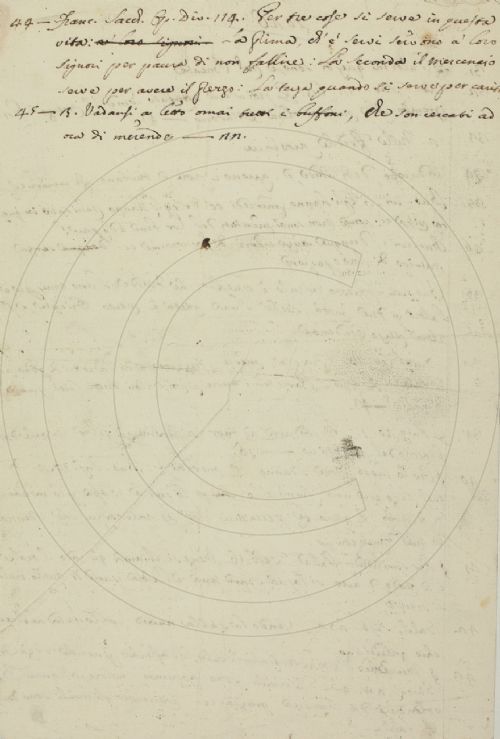 44 — Franc. Sacch. Op. Div. 114. Per tre cose si serve in questa
vita: a' loro signori — La prima, ch'è servi servono a' loro
signori per paura di non fallire: La seconda il Mercenaio
serve per avere il prezzo: La terza quando si serve per carità
45 — B. Vadansi a letto omai tutti i buffoni, che son cercati ad
ora di merende — nn.